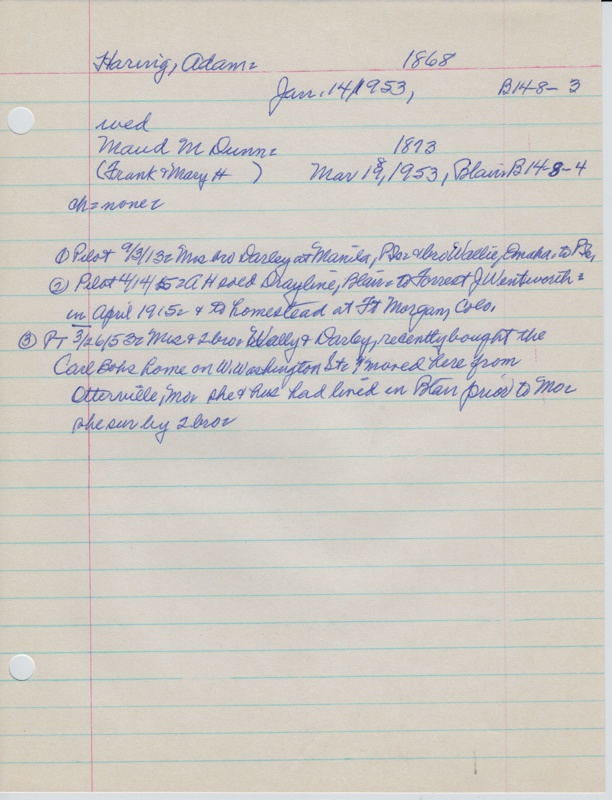 Haring, Adam = 1868
Jan. 14, 1953, B14-8-3
wed
Maud M Dunn = 1873
(Frank & Mary H ) Mar 18, 1953, Blair B14-8-4
ch = none =
① Pilot 9/3/13 = Mrs bro Darley at Manila, PIs = & bro Wallie, Omaha = to
② Pilot 4/14 15 = A H sold Drayline, Blair = to Forrest J Wentworth =
in April 1915 = & to homestead at Ft Morgan, Colo.
③ PT 3/26/53 = Mrs & 2 bro = Wally & Darley, recently bought the
Carl Bohs home on W. Washington St = & moved here from
Otterville, Mo = she & hus had lived in Blair prior to Mo =
she sur by 2 bro =